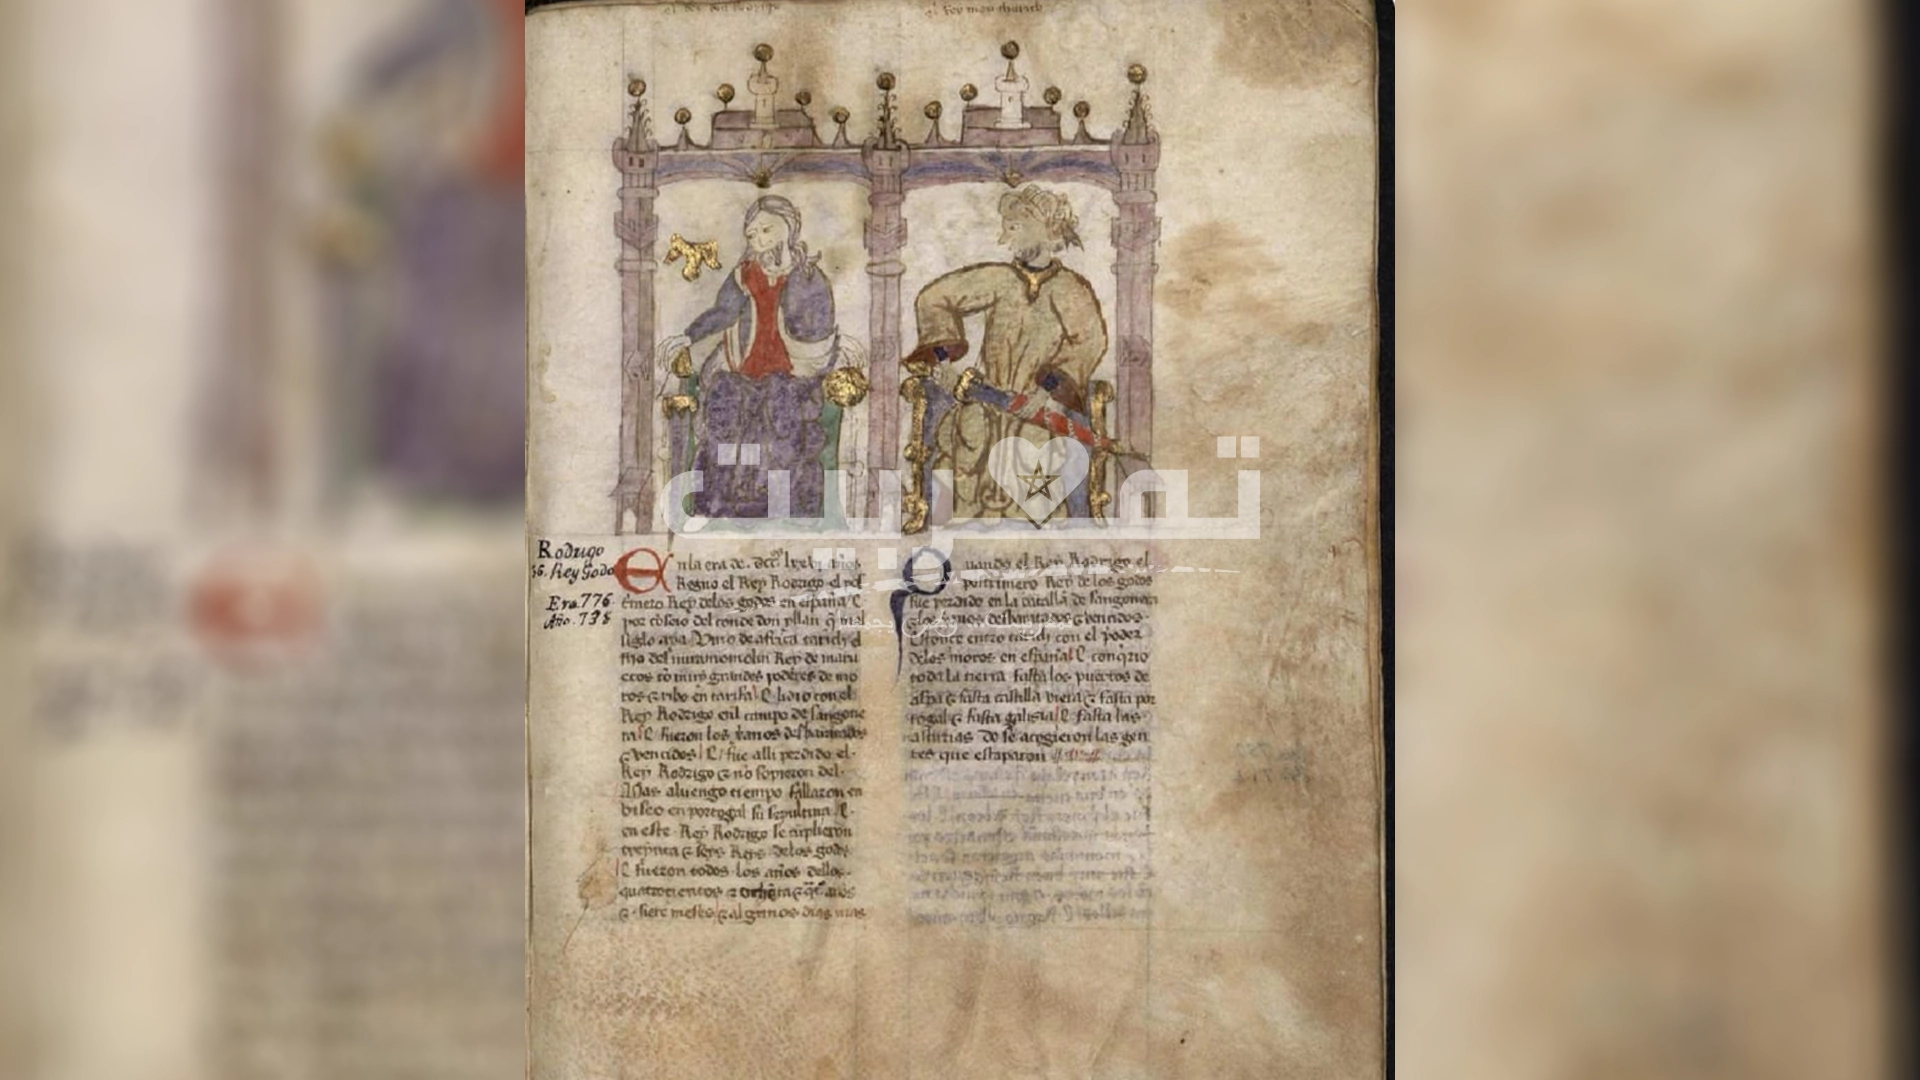 el Rey don Rodrigo
Rodrigo
36. Rey Godo
Era. 776
Año. 738
En la era de. dcclxxvi años
Regno el Rey Rodrigo el pos
timero Rey delos godos en españa E
por cõseio del conde don yllan q̃ mal
sieglo aya Vino de africa tarich el
fijo del miramomolin Rey de marru
ecos cõ muy grandes poderes de mo
ros & ribo en tarifa E lidio con el
Rey Rodrigo enl campo de sangone
ra E fueron los xanos desbaratados
& vencidos E fue alli perdido el
Rey Rodrigo & nõ sopieron del
Mas a luengo tiempo fallaron en
biseo en portogal su sepultura E
en este Rey Rodrigo se cũplieron
treynta & seys Reys delos godos
E fueron todos los años dellos
quatrocientos & años
& siete meses & algunos dias mas
Quando el Rey Rodrigo el
postrimero Rey de los godos
fue perdido en la batalla de sangonera
& los xanos desbaratados & vencidos
Estonce entro tarich con el poder
delos moros en españa E conq̃rio
toda la tierra fasta los puertos de
aspa & fasta castilla vieia & fasta por
togal & fasta galisia E fasta las
asturias do se acogieron las gen
tes que escaparon
تمغربيت